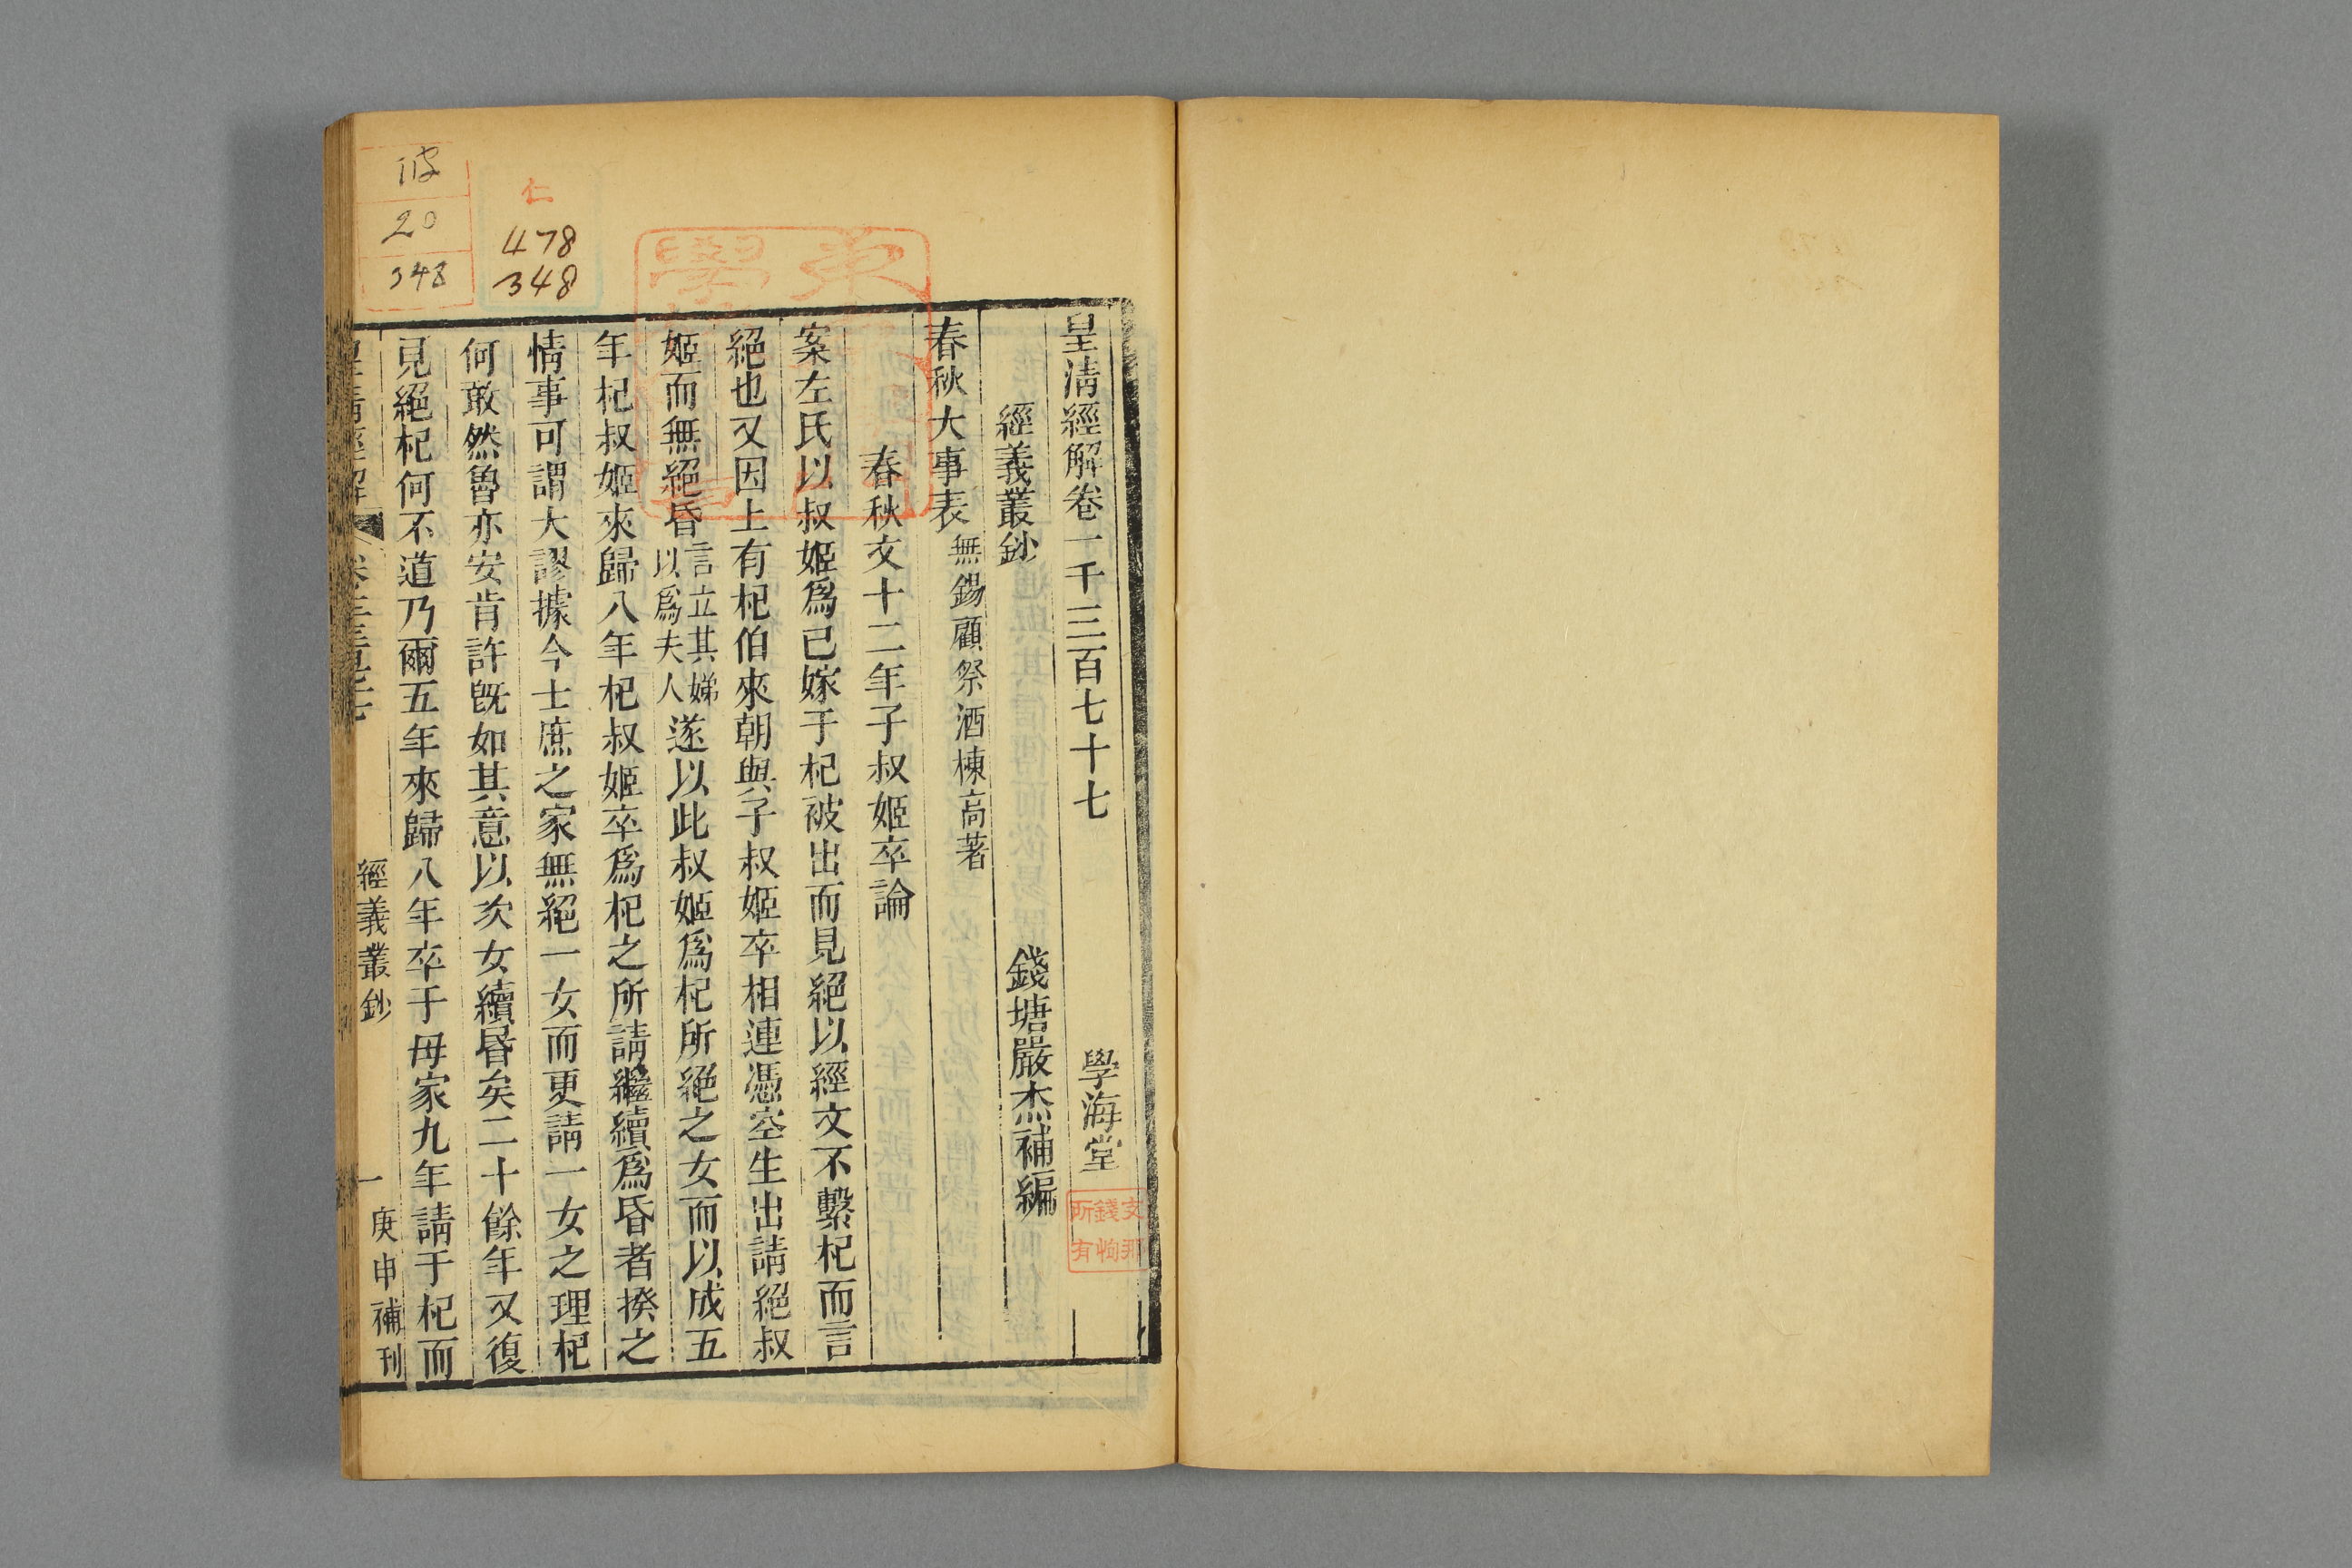 皇清經解卷一千三百七十七
學海堂
經義叢鈔
錢塘嚴杰補編
春秋大事表 無錫顧祭酒棟高著
春秋文十二年子叔姬卒論
案左氏以叔姬爲已嫁于杞被出而見絕以經文不繫杞而言
絕也又因上有杞伯來朝與子叔姬卒相連憑空生出請絕叔
姬而無絕昏言立其娣以爲夫人遂以此叔姬爲杞所絕之女而以成五
年杞叔姬來歸八年杞叔姬卒爲杞之所請繼續爲昏者揆之
情事可謂大謬據今士庶之家無絕一女而更請一女之理杞
何敢然魯亦安肯許旣如其意以次女續昏矣二十餘年又復
見絕杞何不道乃爾五年來歸八年卒于母家九年請于杞而
皇清經解
經義叢鈔
一
庚申補刊
仁
478
348
20
348